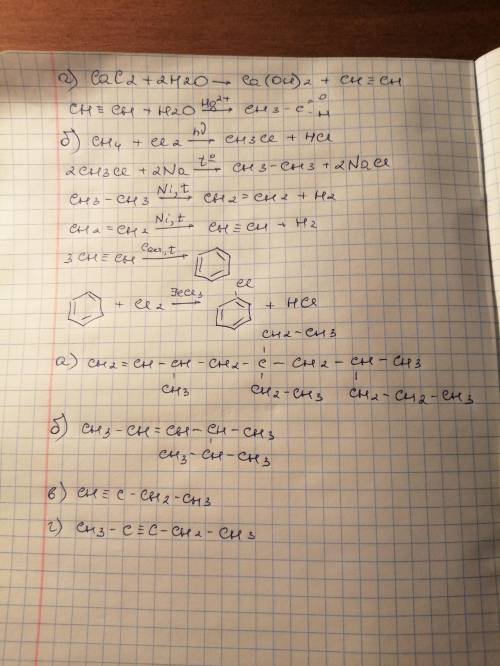 а) CaC2 + 2H2O → Ca(OH)2 + CH≡CH
CH≡CH + H2O Hg2+→ CH3-C=O H
б) CH4 + Cl2 hν→ CH3Cl + HCl
2CH3Cl + 2Na t°→ CH3-CH3 + 2NaCl
CH3-CH3 Ni,t→ CH2=CH2 + H2
CH2=CH2 Ni,t→ CH≡CH + H2
3CH≡CH Cакт,t→
Cl
+ Cl2 FeCl3→ + HCl
CH2-CH3
а) CH2=CH-CH-CH2-C-CH2-CH-CH3
CH3 CH2-CH3 CH2-CH2-CH3
б) CH3-CH=CH-CH-CH3
CH3-CH-CH3
в) CH≡C-CH2-CH3
г) CH3-C≡C-CH2-CH3